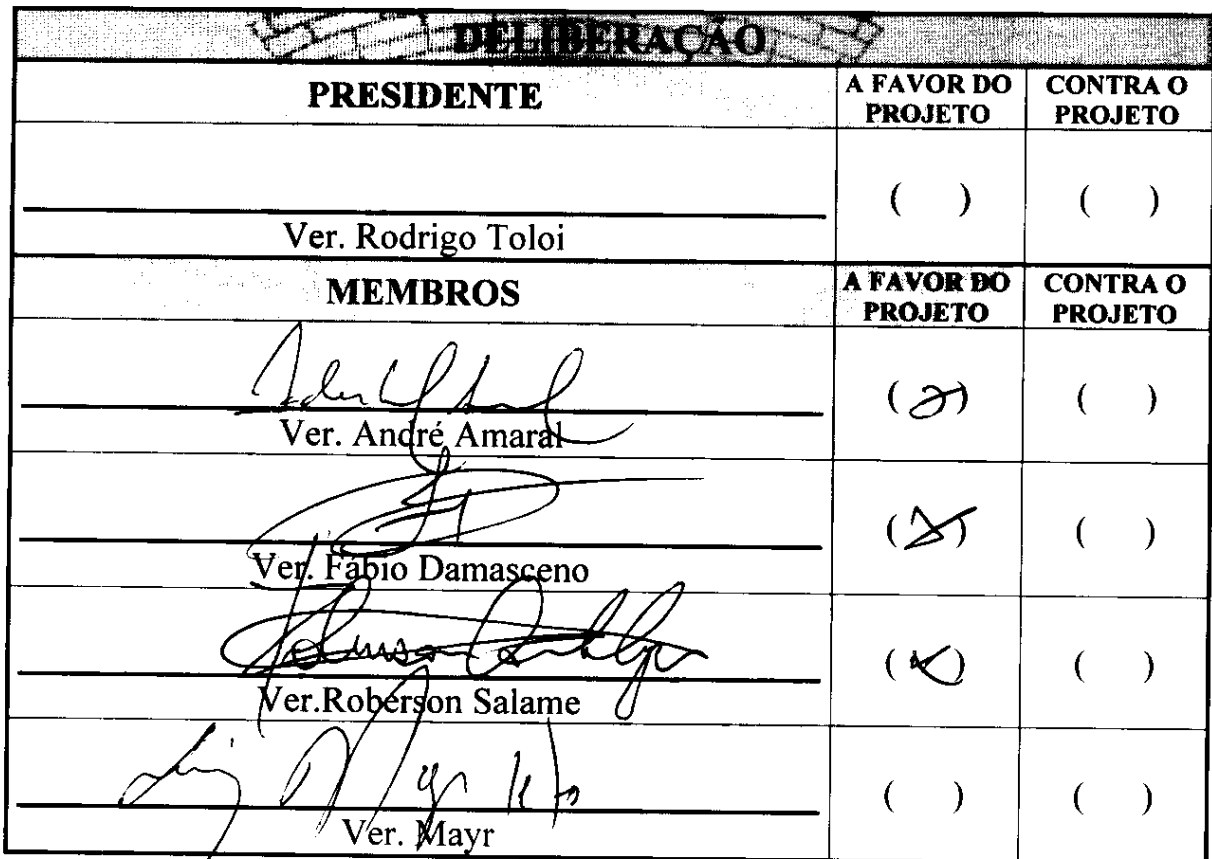 DELIBERAÇÃO
PRESIDENTE A FAVOR DO PROJETO CONTRA O PROJETO
( ) ( )
Ver. Rodrigo Toloi
MEMBROS A FAVOR DO PROJETO CONTRA O PROJETO
( ) ( )
Ver. André Amaral
(X) ( )
Ver. Fábio Damasceno
(X) ( )
Ver.Roberson Salame
( ) ( )
Ver. Mayr